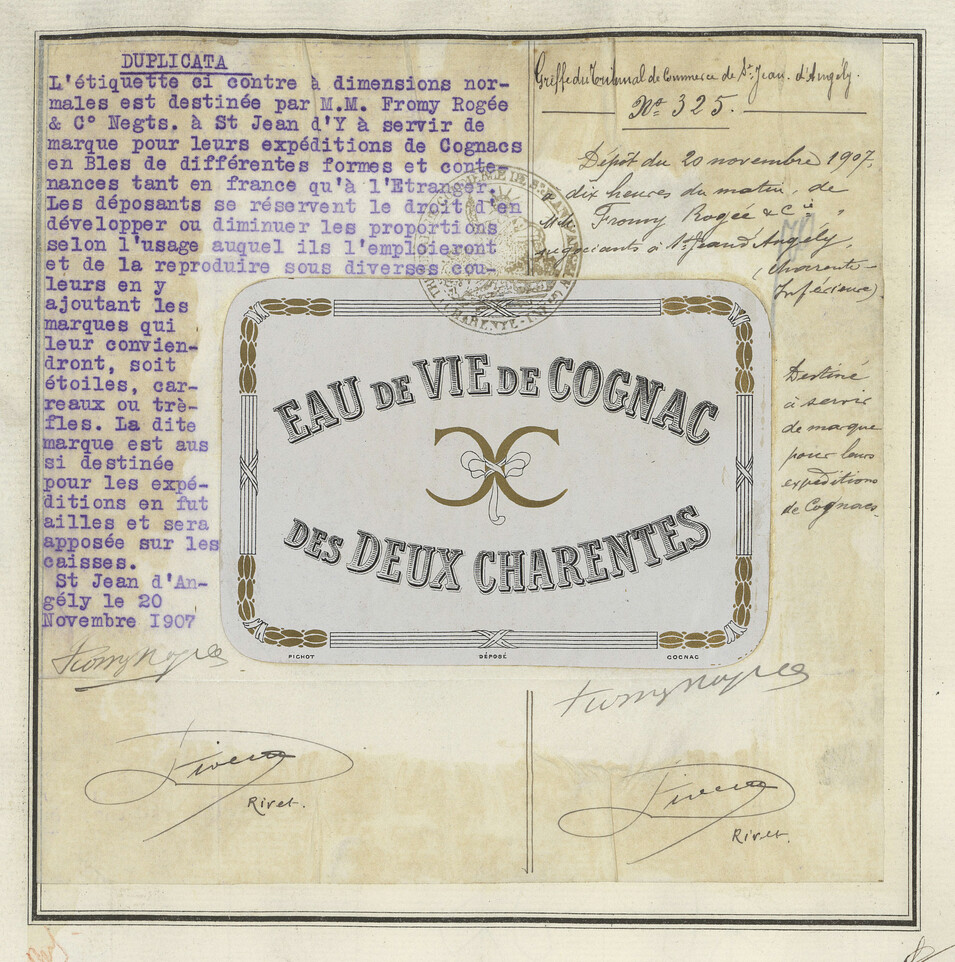 DUPLICATA
L'étiquette ci contre à dimensions nor-
males est destinée par M.M. Fromy Rogée
& C° Negts. à St Jean d'Y à servir de
marque pour leurs expéditions de Cognacs
en Bles de différentes formes et conte-
nances tant en france qu'à l'Etranger.
Les déposants se réservent le droit d'en
développer ou diminuer les proportions
selon l'usage auquel ils l'emploieront
et de la reproduire sous diverses cou-
leurs en y
ajoutant les
marques qui
leur convien-
dront, soit
étoiles, car-
reaux ou trè-
fles. La dite
marque est aus
si destinée
pour les expé-
ditions en fut
ailles et sera
apposée sur les
caisses.
St Jean d'An-
gély le 20
Novembre I907
Greffe du Tribunal de Commerce de St Jean d'Angély.
No 325.
Dépôt du 20 novembre 1907,
dix heures du matin, de
M.M. Fromy Rogée & Cie
négociants à St Jean d'Angély,
(Charente-
Inférieure)
EAU DE VIE DE COGNAC
DES DEUX CHARENTES
PICHOT DÉPOSÉ COGNAC
Destiné
à servir
de marque
pour leurs
expéditions
de Cognacs.
Fromy Rogée
Fromy Rogée
Rivet.
Rivet.